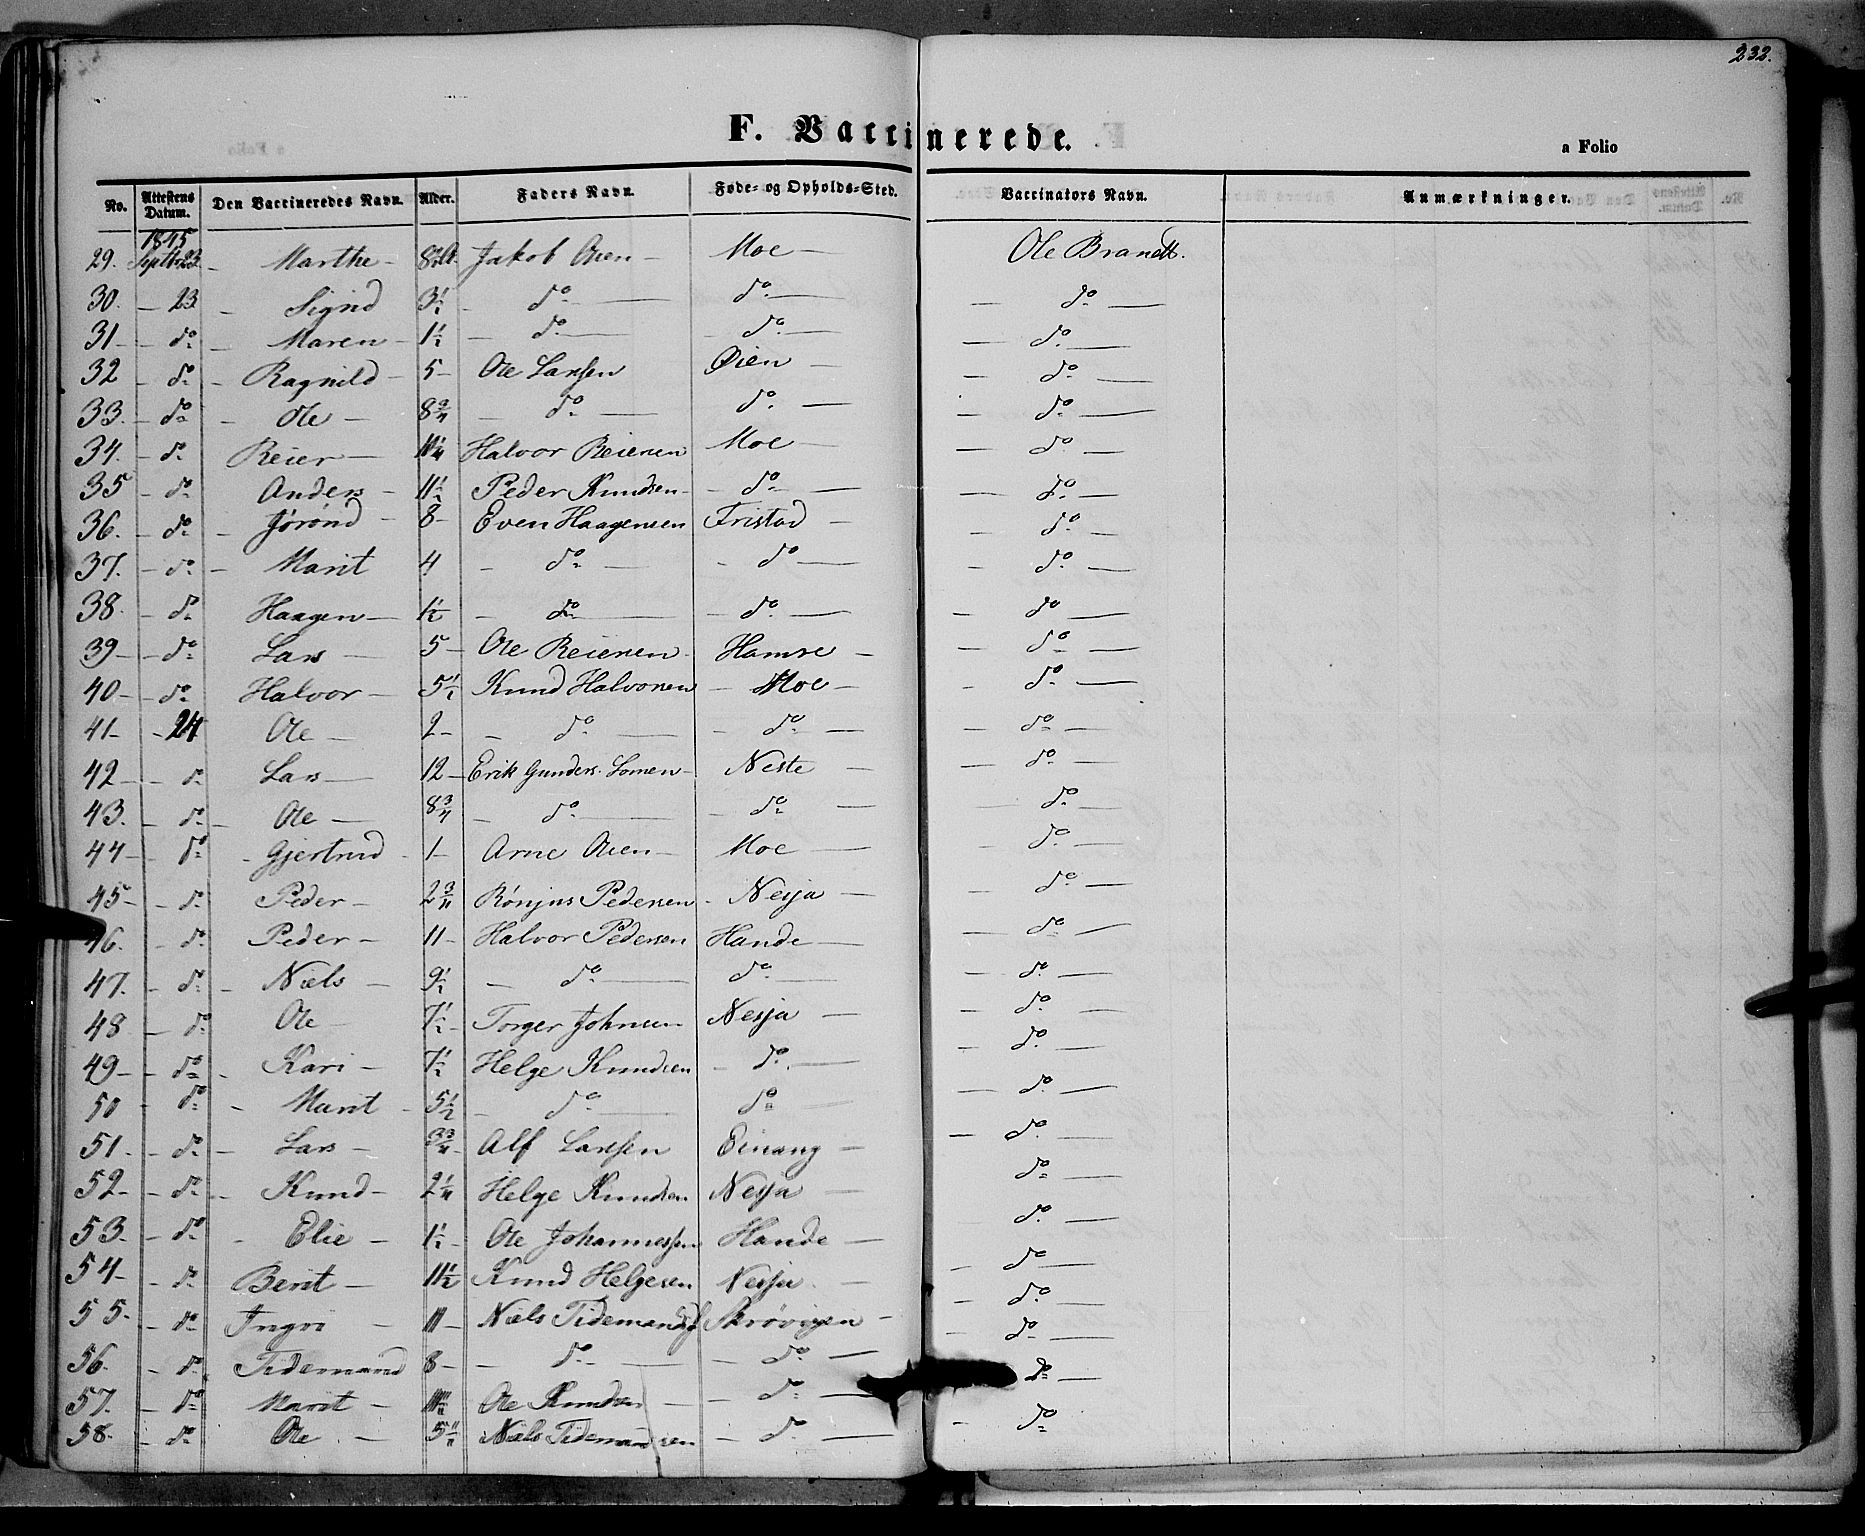 232.
F. Vaccinerede.
a Folio
No. Attestens Datum. Den Vaccineredes Navn. Alder. Faders Navn. Føde- og Opholds-Sted. Vaccinators Navn. Anmærkninger.
1845
29. Septbr 23 - Marthe - 8 Jakob Olsen - Moe - Ole Brandt.
30. - 23 - Sigrid 3½ - do - do - - do -
31 - do - Maren - 1½ - do - do - - do -
32 - do - Ragnild - 5 - Ole Larsen Øien - - do -
33. - do - Ole - 8¾ - do - do - - do -
34. - do Reier - 11¼ Halvor Reiersen Moe - - do -
35 - do - Anders - 11½ Peder Knudsen - - do - - do -
36. - do - Jørønd - 8 - Even Haagensen Fristad - - do -
37. - do - Marit 4 - do - - do - - do -
38. - do Haagen - 1½ - do - - do - - do -
39 - - do Lars - 5 - Ole Reiersen Hamre - - do -
40 - - do Halvor - 5½ Knud Halvorsen - Moe - - do -
41 - - 24 Ole - 2 - - do - - do - - do -
42 - - do Lars - 12 - Erik Gunders. Lomen - Neste - - do -
43. - do - Ole - 8¾ - do - do - - do -
44 - - do - Gjertrud - 1 - Arne Olsen - Moe - - do -
45 - - do - Peder - 2¾ Rønjus Pedersen - Nesja - - do -
46. - do Peder - 11 - Halvor Pedersen Hande - - do -
47. - do - Niels - 9½ - do - do - - do -
48 - do Ole - 7½ - Torger Johnsen Nesja - - do -
49 - - do - Kari - 7½ Helge Knudsen - do - - do -
50 - do - Marit - 5½ - do - do - - do -
51. - do - Lars - 3¾ - Alf Larssen Einang - - do -
52 - - do - Knud - 2¼ Helge Knudsen Nesja - - do -
53. - do - Elie - 1½ - Ole Johannessen Hande - - do -
54 - - do Berit - 11½ Knud Helgesen Nesja - - do -
55. - do - Ingri - 11 - Niels Tidemands - do -
56. - do - Tidemand 8 - - do - - do - do -
57. - do Marit - Ole Knudsen - - do - do -
58. - do Ole - 5 Niels Tidemandsen - do - - do